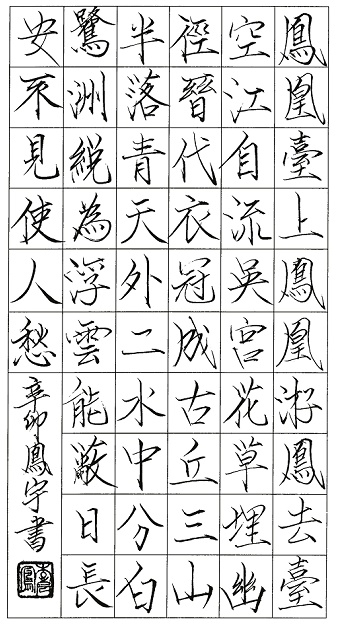 鳳凰臺上鳳凰游鳳去臺
空江自流吳宮花草埋幽
徑晉代衣冠成古丘三山
半落青天外二水中分白
鷺洲總為浮雲能蔽日長
安不見使人愁
辛卯鳳宇書